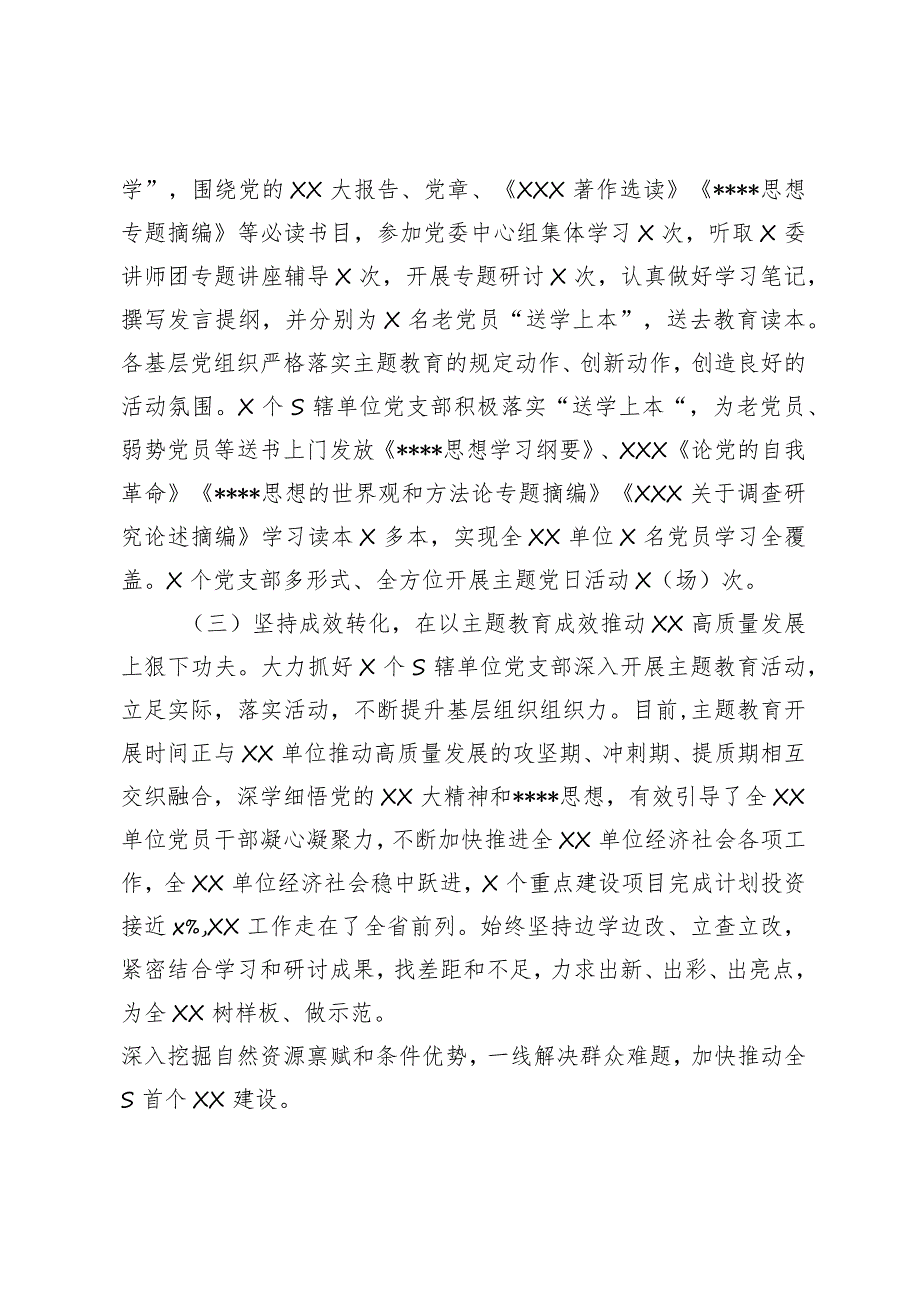 学”，围绕党的 XX 大报告、党章、《XXX 著作选读》《****思想
专题摘编》等必读书目，参加党委中心组集体学习 X 次，听取 X 委
讲师团专题讲座辅导 X 次，开展专题研讨 X 次，认真做好学习笔记，
撰写发言提纲，并分别为 X 名老党员“送学上本”，送去教育读本。
各基层党组织严格落实主题教育的规定动作、创新动作，创造良好的
活动氛围。X 个 S 辖单位党支部积极落实“送学上本“，为老党员、
弱势党员等送书上门发放《****思想学习纲要》、XXX《论党的自我
革命》《****思想的世界观和方法论专题摘编》《XXX 关于调查研
究论述摘编》学习读本 X 多本，实现全 XX 单位 X 名党员学习全覆
盖。X 个党支部多形式、全方位开展主题党日活动 X（场）次。
（三）坚持成效转化，在以主题教育成效推动 XX 高质量发展
上狠下功夫。大力抓好 X 个 S 辖单位党支部深入开展主题教育活动，
立足实际，落实活动，不断提升基层组织组织力。目前,主题教育开
展时间正与 XX 单位推动高质量发展的攻坚期、冲刺期、提质期相互
交织融合，深学细悟党的 XX 大精神和****思想，有效引导了全 XX
单位党员干部凝心凝聚力，不断加快推进全 XX 单位经济社会各项工
作，全 XX 单位经济社会稳中跃进，X 个重点建设项目完成计划投资
接近 x%,XX 工作走在了全省前列。始终坚持边学边改、立查立改，
紧密结合学习和研讨成果，找差距和不足，力求出新、出彩、出亮点，
为全 XX 树样板、做示范。
深入挖掘自然资源禀赋和条件优势，一线解决群众难题，加快推动全
S 首个 XX 建设。